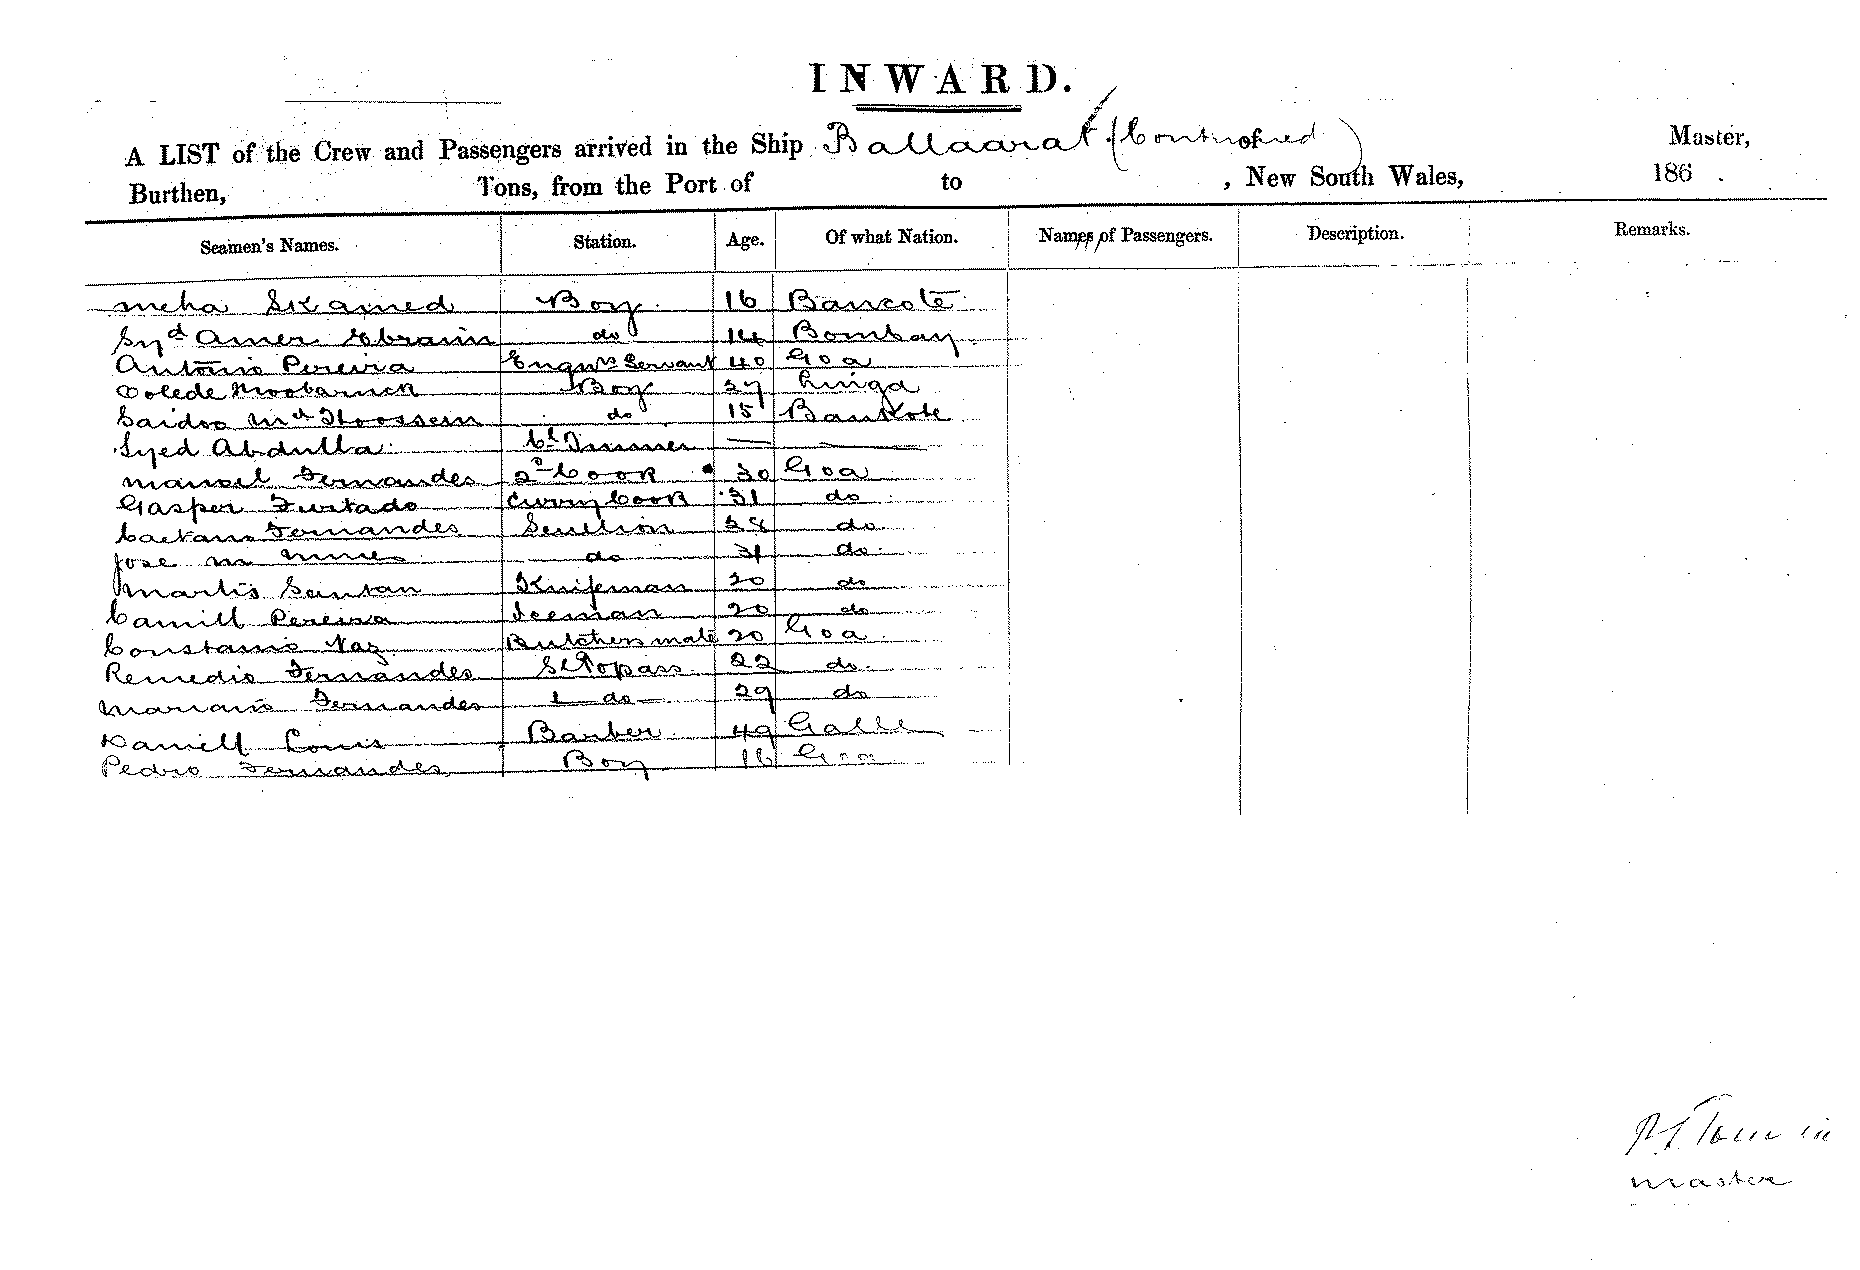 INWARD.
A LIST of the Crew and Passengers arrived in the Ship Ballaarat (Continued) Master,
Burthen, Tons, from the Port of to , New South Wales, 186 .
Seamen's Names. Station. Age. Of what Nation. Names of Passengers. Description. Remarks.
Meha Sk amed Boy 16 Bancote
Syd Amer Ebraim do 14 Bombay
Antonio Pereira Engnrs Servant 40 Goa
Boy 27 Linga
Saidoo Md Hoossein do 15 Bankote
Syed Abdulla —
Manoel Fernandes 2d Cook 30 Goa
Gasper Furtado Curry Cook 31 do
Caetano Fernandes Scullion 28 do
Jose M do 31 do
Martis Santan Knifeman 20 do
Camill Pereira Iceman 20 do
Constanio Vaz Butchers mate 20 Goa
Remedio Fernandes Sl Topass 22 do
Mariano Fernandes 1 do 29 do
Daniell Louis Barber 49 Galle
Pedro Fernandes Boy 16 Goa
Master